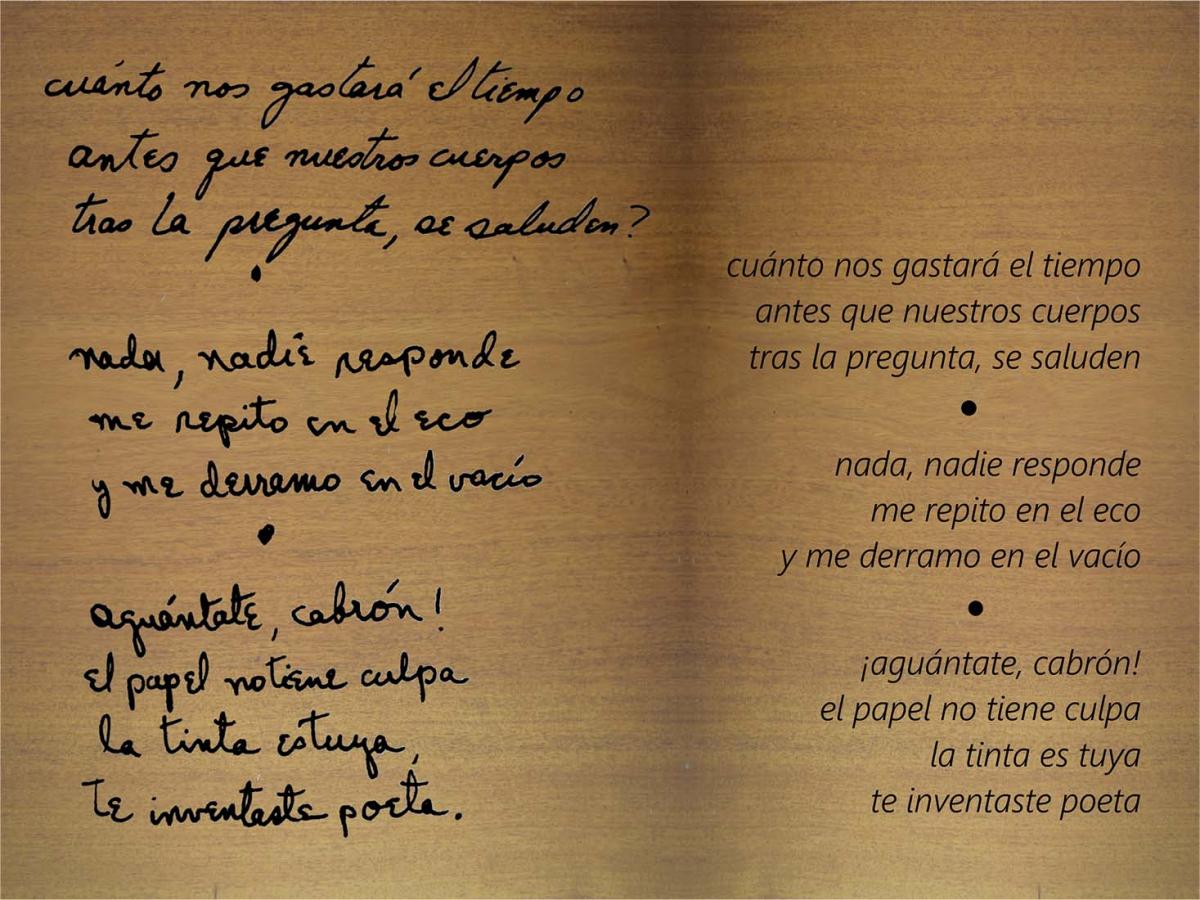 cuánto nos gastará el tiempo
antes que nuestros cuerpos
tras la pregunta, se saluden?
•
nada, nadie responde
me repito en el eco
y me derramo en el vacío
•
aguántate, cabrón!
el papel no tiene culpa
la tinta es tuya,
te inventaste poeta.
cuánto nos gastará el tiempo
antes que nuestros cuerpos
tras la pregunta, se saluden
•
nada, nadie responde
me repito en el eco
y me derramo en el vacío
•
¡aguántate, cabrón!
el papel no tiene culpa
la tinta es tuya
te inventaste poeta